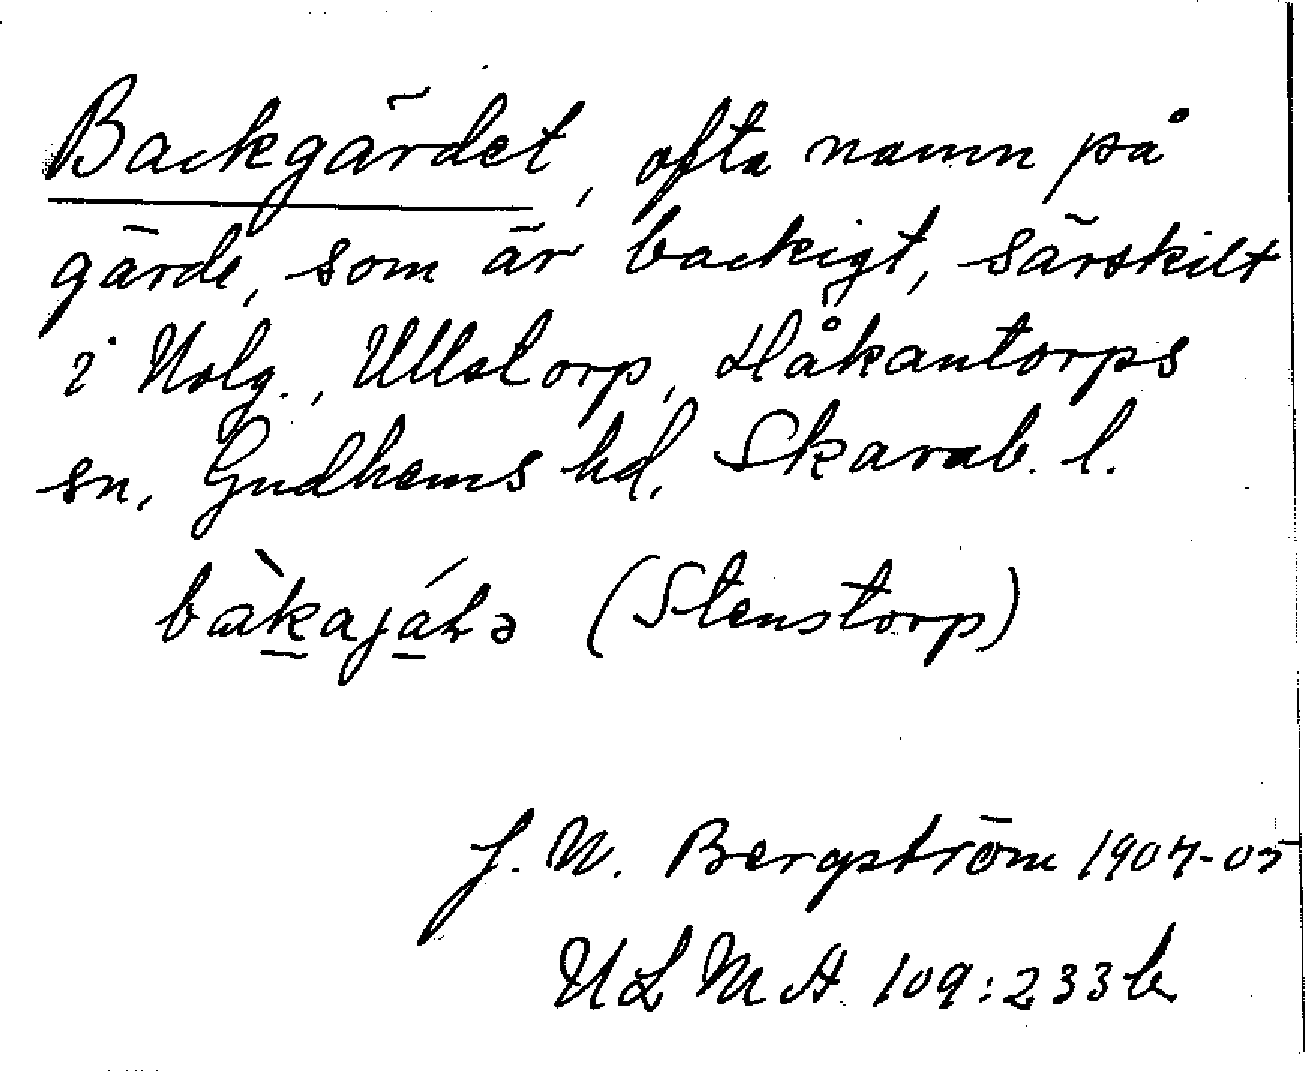 Backgärdet, ofta namn på
gärde, som är backigt, särskilt
i Uolg., Ullstorp, Håkantorps
sn, Gudhems hd, Skarab. l.
bàkajáɫə (Stenstorp)
J. N. Bergström 1904-05
ULMA 109:233 b